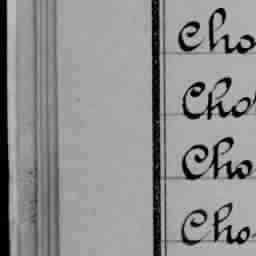 Cho
Cho
Cho
Cho